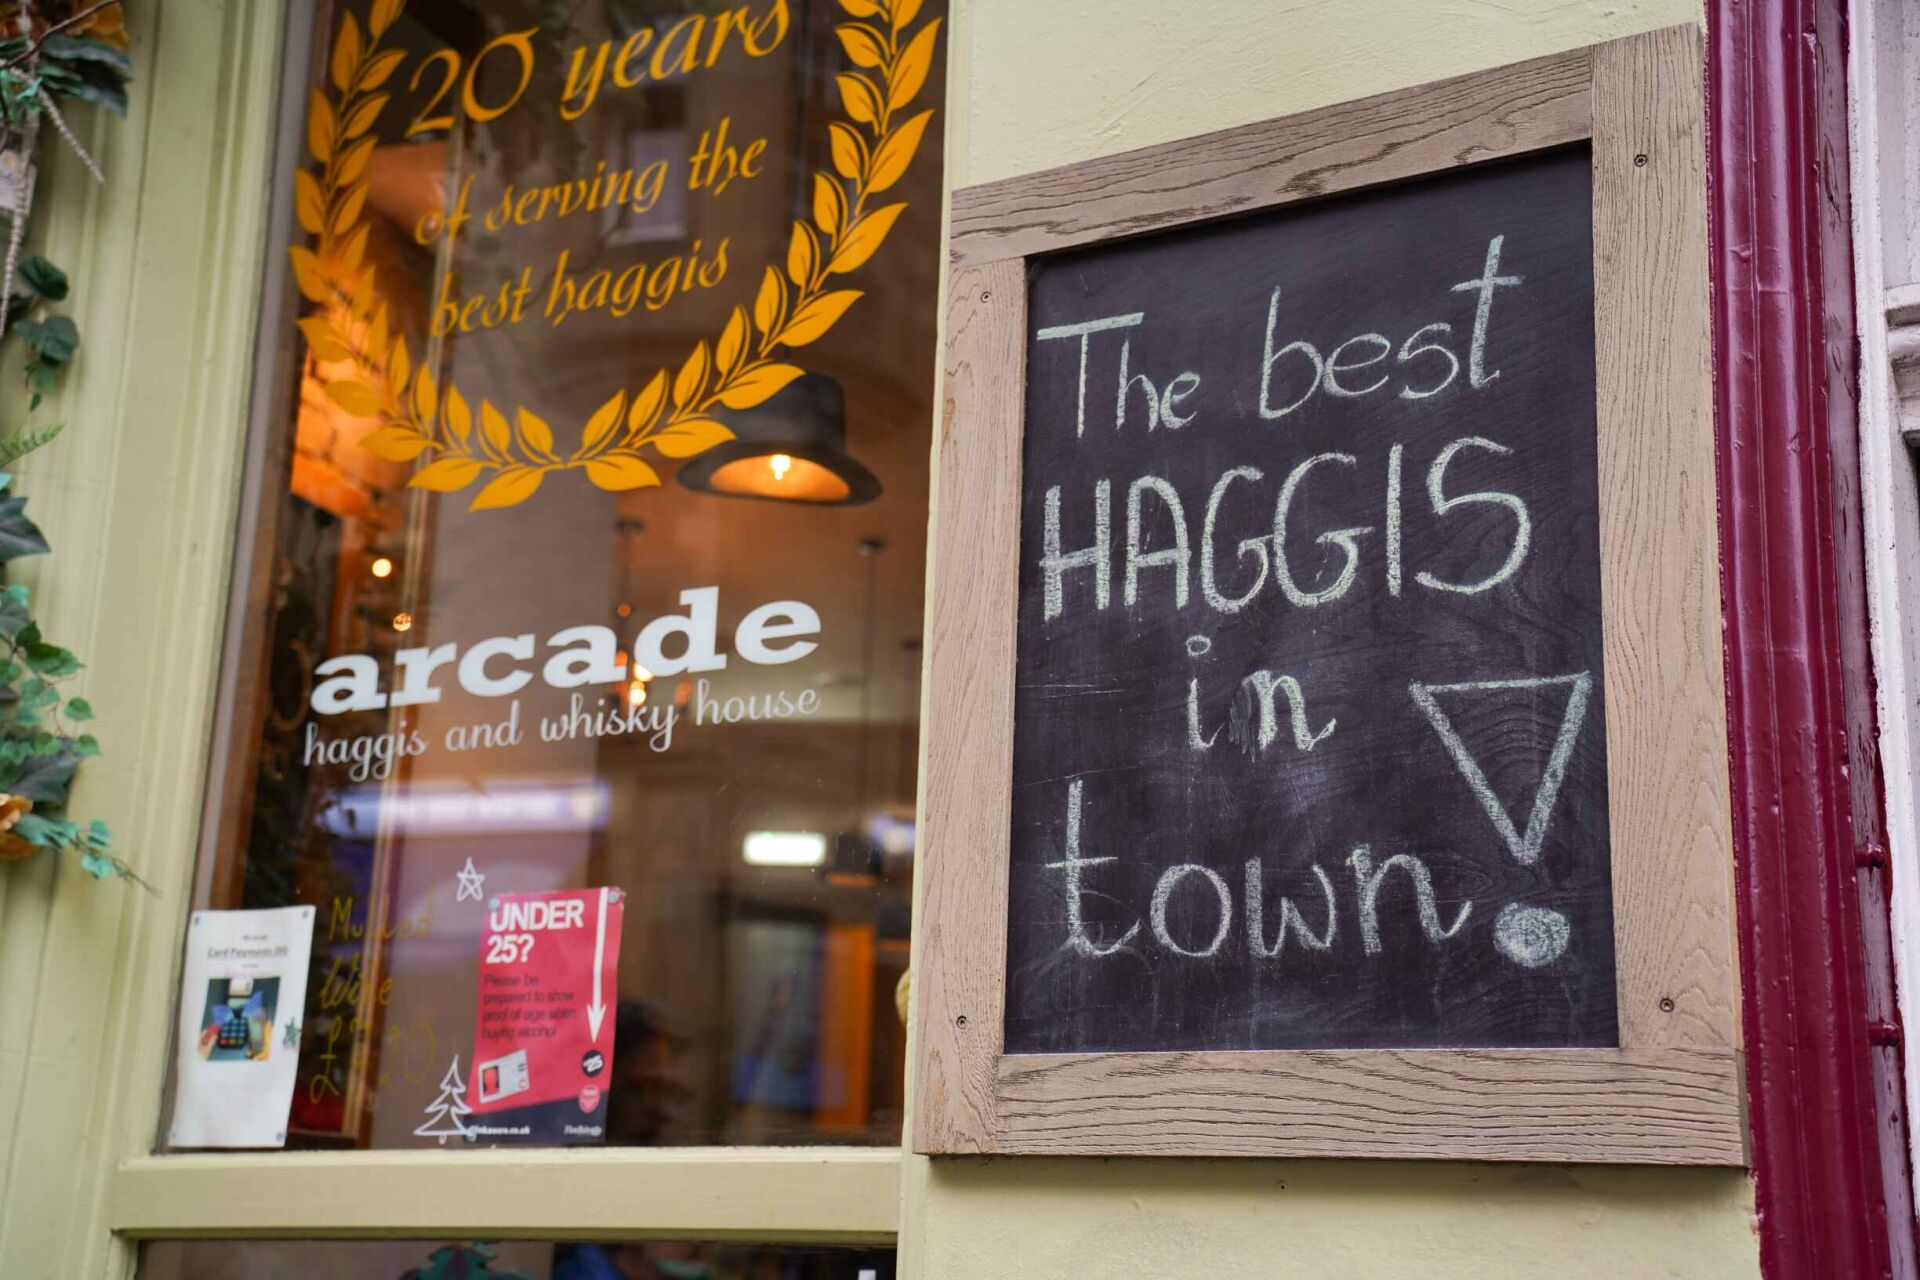 20 years
of serving the
best haggis
arcade
haggis and whisky house
Card Payments
Mulled
Wine
UNDER
25?
Please be
prepared to show
proof of age when
buying alcohol
The best
HAGGIS
in
town!